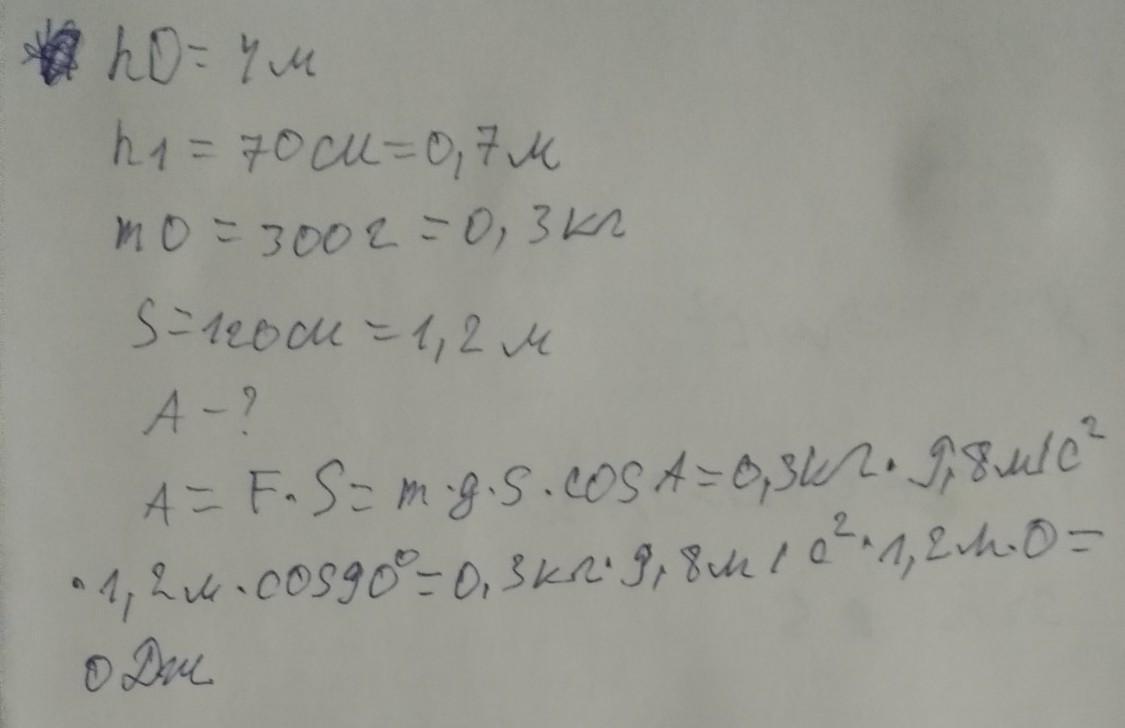 h0 = 4 м
h1 = 70 см = 0,7 м
m0 = 300 г = 0,3 кг
S = 120 см = 1,2 м
A - ?
A = F · S = m · g · S · cos A = 0,3 кг · 9,8 м/с²
· 1,2 м · cos 90° = 0,3 кг · 9,8 м/с² · 1,2 м · 0 =
0 Дж